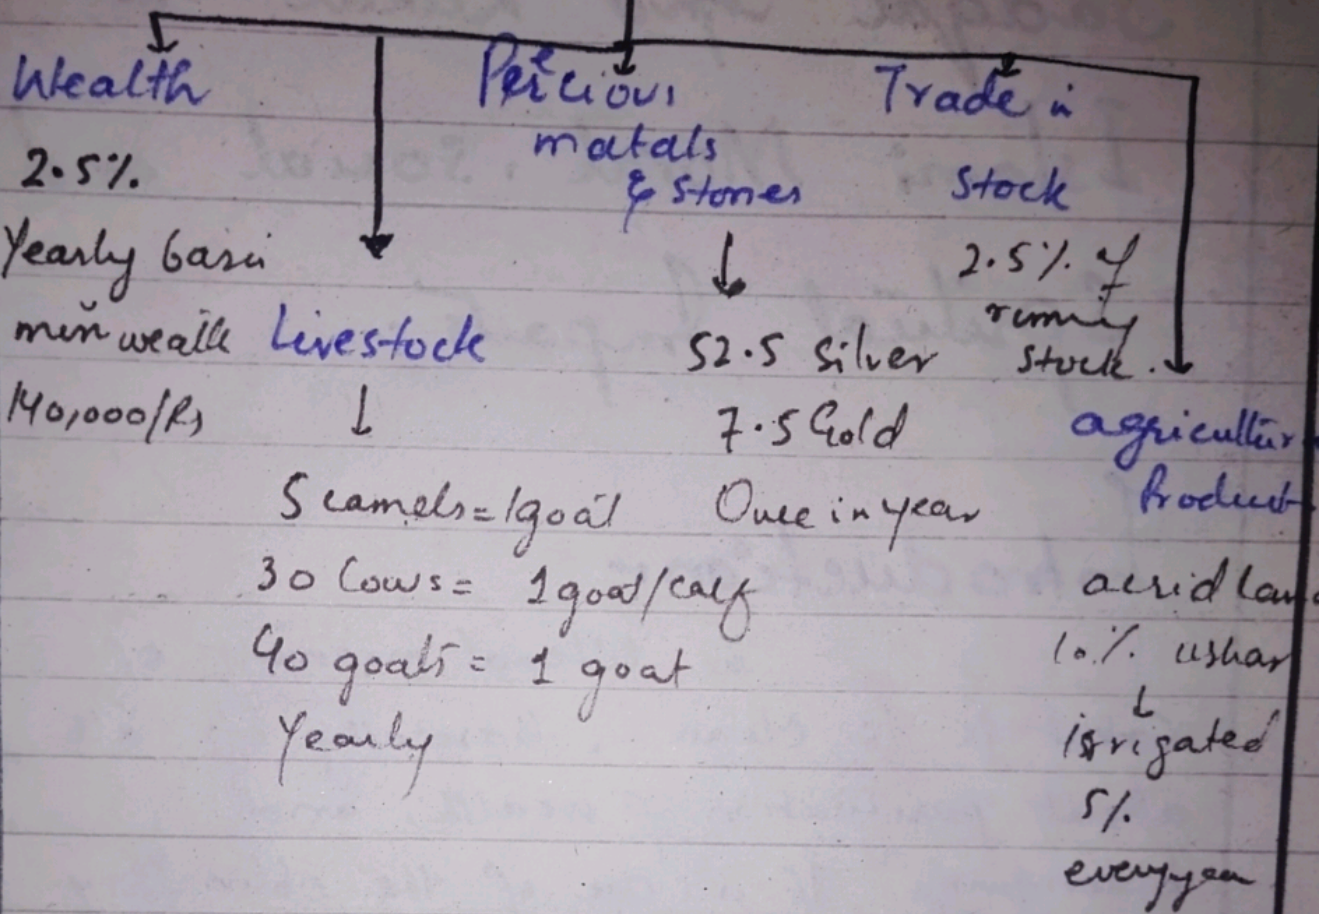 Wealth
2.5%
Yearly basis
min wealth
140,000/Rs
Livestock
5 camels = 1 goat
30 Cows = 1 goat/calf
40 goats = 1 goat
Yearly
Percious
matals
& stones
52.5 silver
7.5 Gold
Once in year
Trade in
Stock
2.5% of
running
stock.
agricultur
Product
acrid lan
10% ushar
irrigated
5%
every year